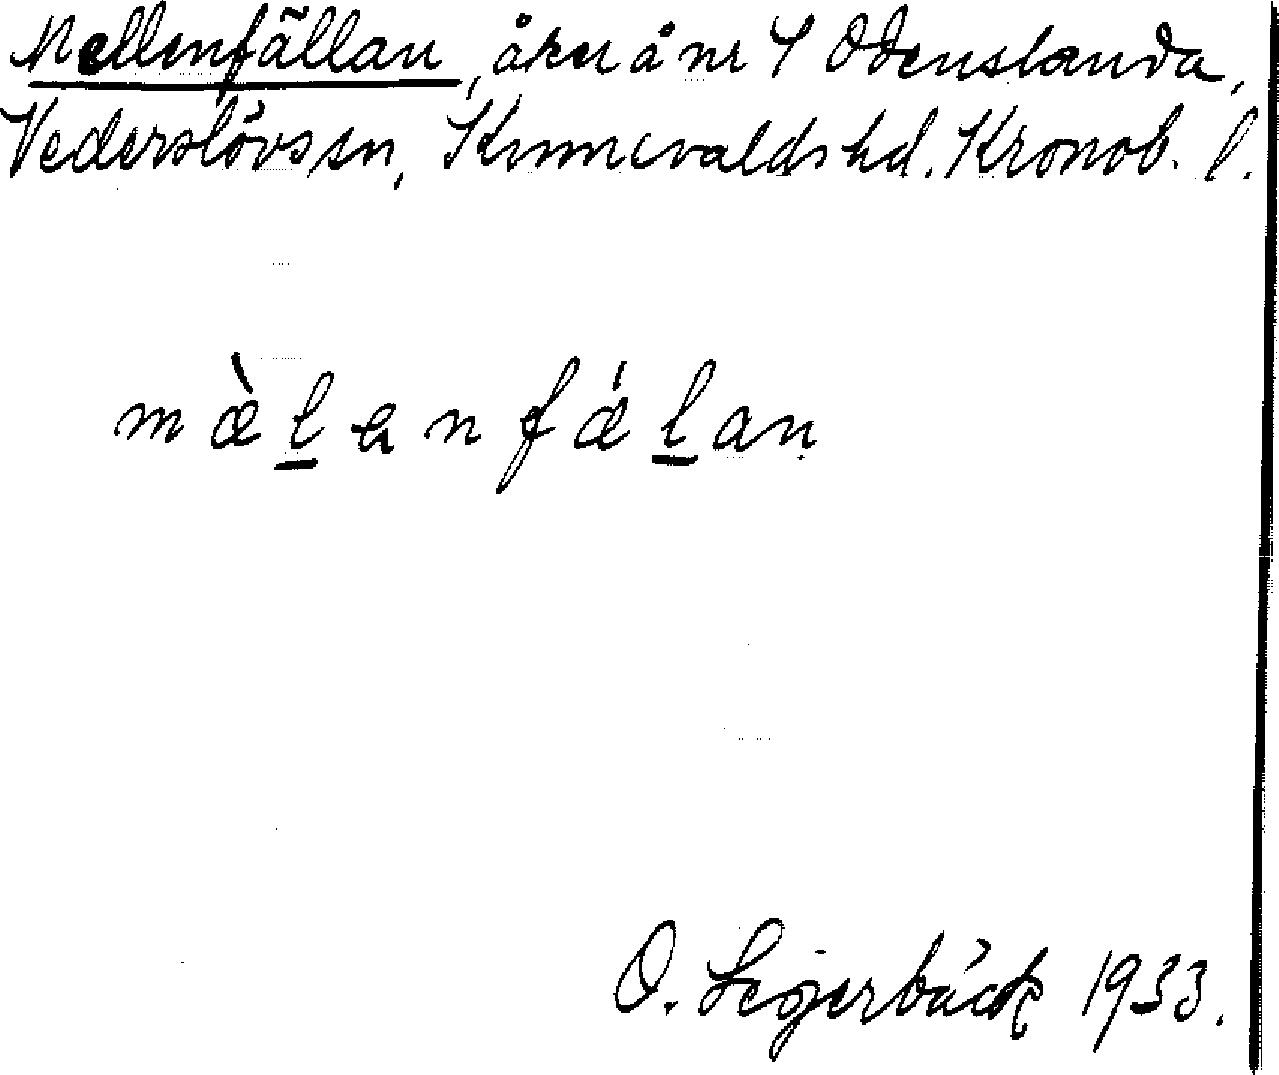 Mellenfällan, åker å nr 4 Odenslanda,
Vederslövs sn, Kinnevalds hd. Kronob. l.
mæ̀l̲enfǽl̲an
O. Sejerbäck 1933.